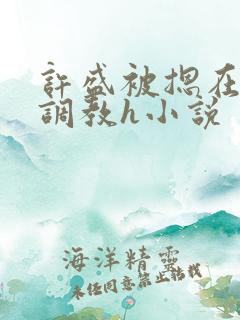 許盛被摁在
調教h小說
海洋精靈
未經同意禁止轉載